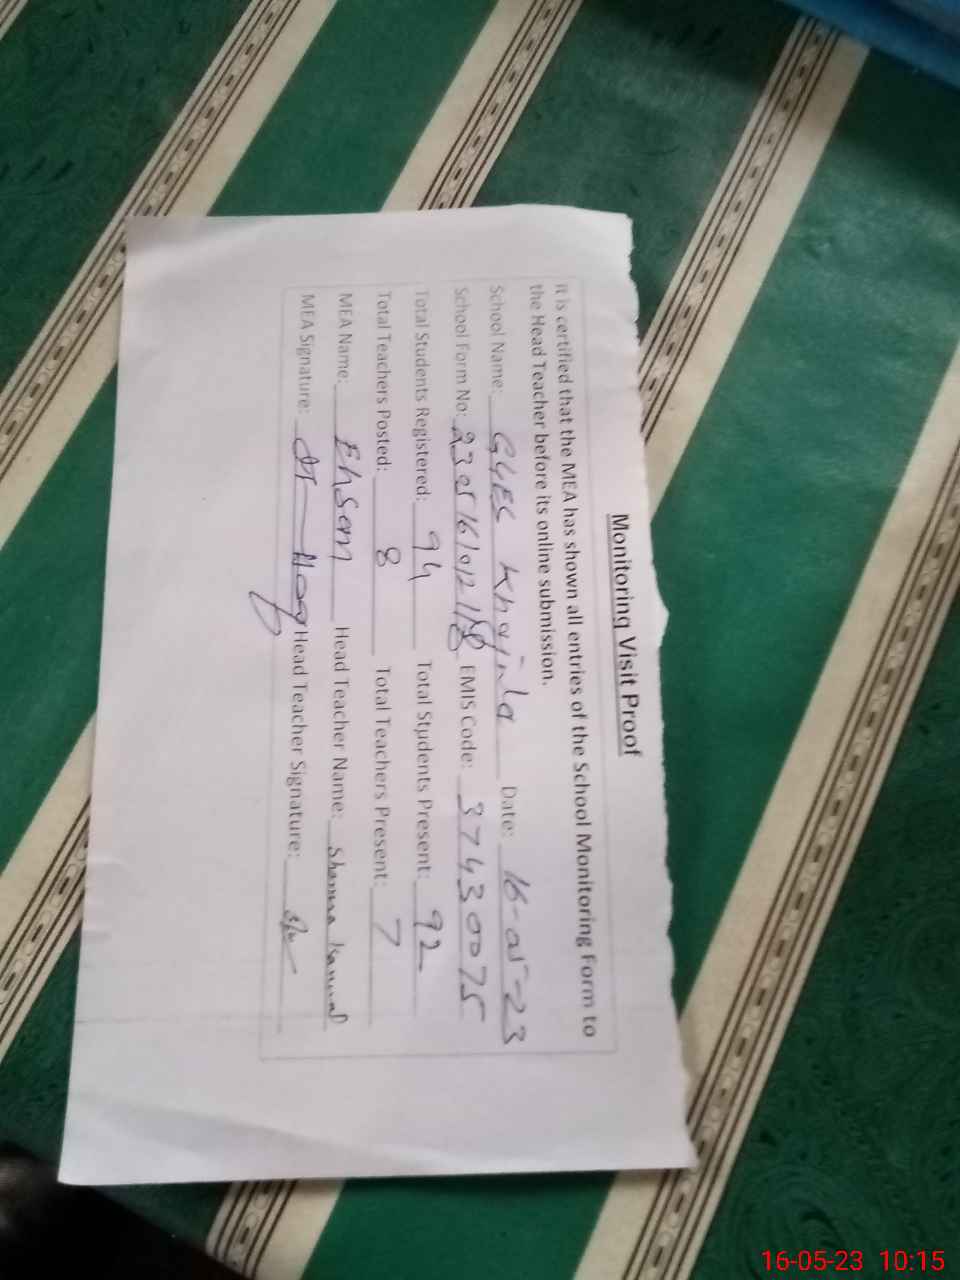 Monitoring Visit Proof
It is certified that the MEA has shown all entries of the School Monitoring Form to
the Head Teacher before its online submission.
School Name: GGES Khajula Date: 16-05-23
School Form No: EMIS Code: 37430075
Total Students Registered: 94 Total Students Present: 92
Total Teachers Posted: 8 Total Teachers Present: 7
MEA Name: Ehsan Head Teacher Name: Shamsa Kanwal
MEA Signature: Head Teacher Signature:
16-05-23 10:15